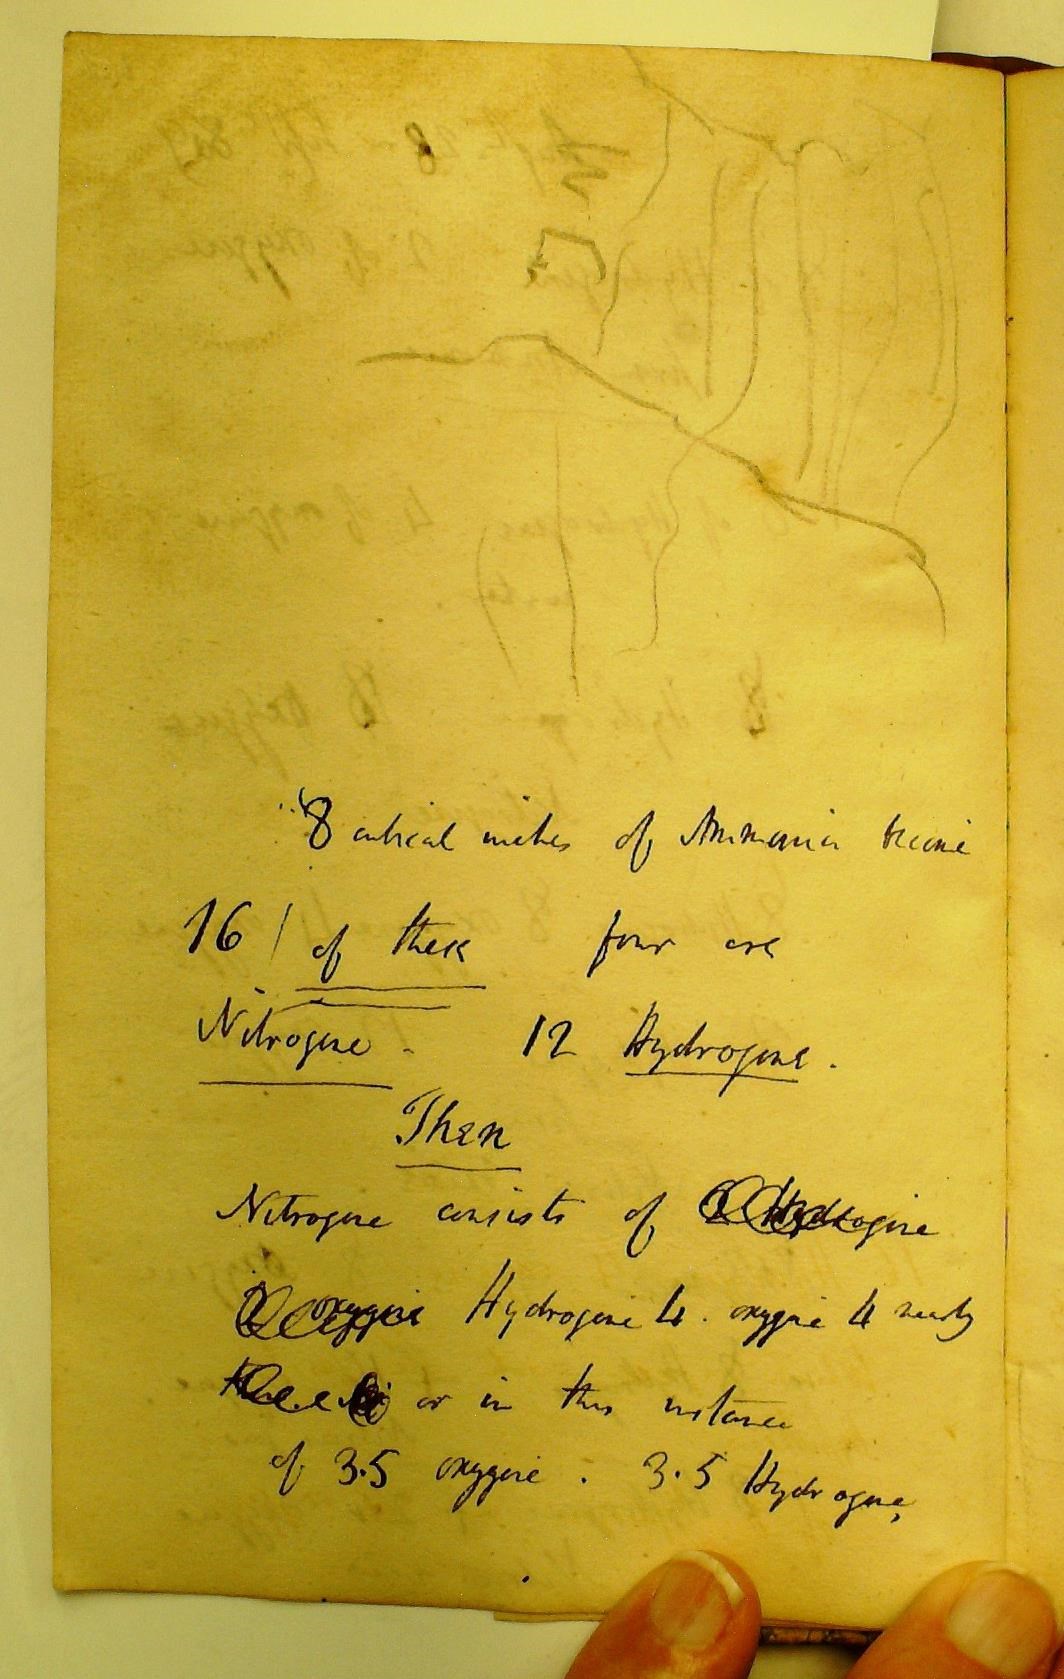 8 cubical inches of Ammonia become
16 / of these four are
Nitrogene. 12 Hydrogene.
Then
Nitrogene consists of Hydrogene
oxygene Hydrogene 4. oxygene 4 nearly
or in this instance
of 3.5 oxygene. 3.5 Hydrogene,